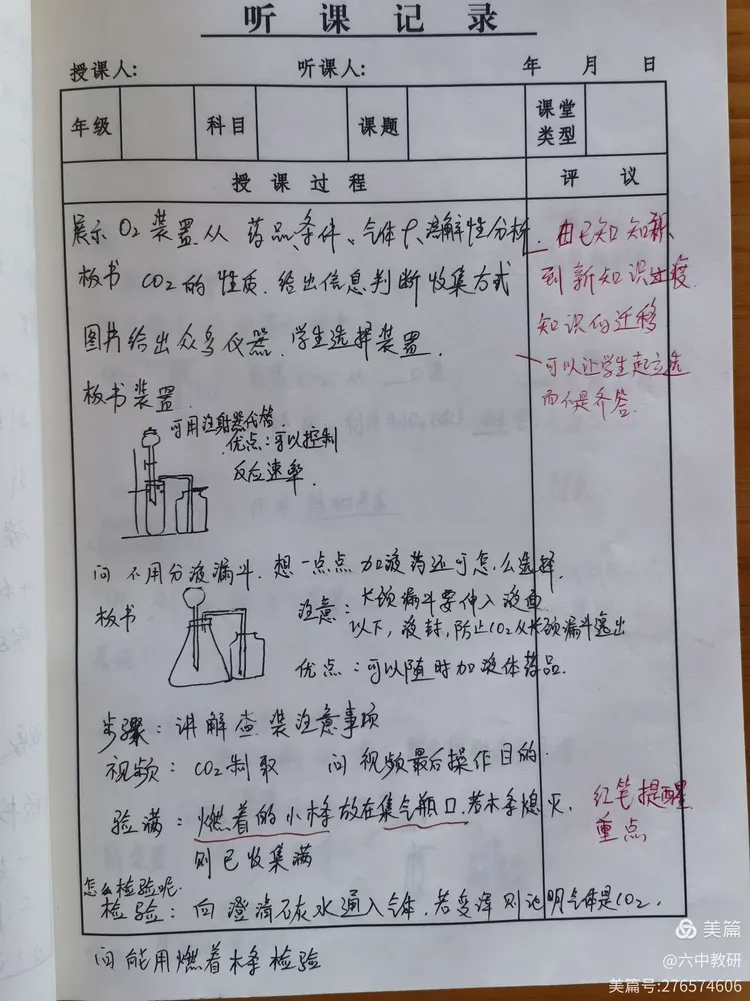 听课记录
授课人: 听课人: 年 月 日
年级 科目 课题 课堂类型
授课过程 评议
展示 O2 装置从 药品、条件、气体 溶解性分析.
板书 CO2的性质. 给出信息判断收集方式
图片给出众多仪器. 学生选择装置.
板书装置.
由已知 知识
到新知识过渡.
知识的迁移
可以让学生起立选
而不是齐答.
可用注射器代替
优点:可以控制
反应速率.
问 不用分液漏斗. 想一点点 加液药还可怎么选择.
板书
注意: 长颈漏斗要伸入液面
以下, 液封, 防止CO2从长颈漏斗逸出
优点:可以随时加液体药品.
步骤: 讲解查装注意事项
视频: CO2制取 问 视频最后操作目的.
验满: 燃着的小木条放在集气瓶口. 若木条熄灭.
则已收集满
红笔提醒
重点
怎么检验呢.
检验: 向澄清石灰水通入气体. 若变浑则证明气体是CO2.
问 能用燃着木条检验
美篇
@六中教研
美篇号:276574606